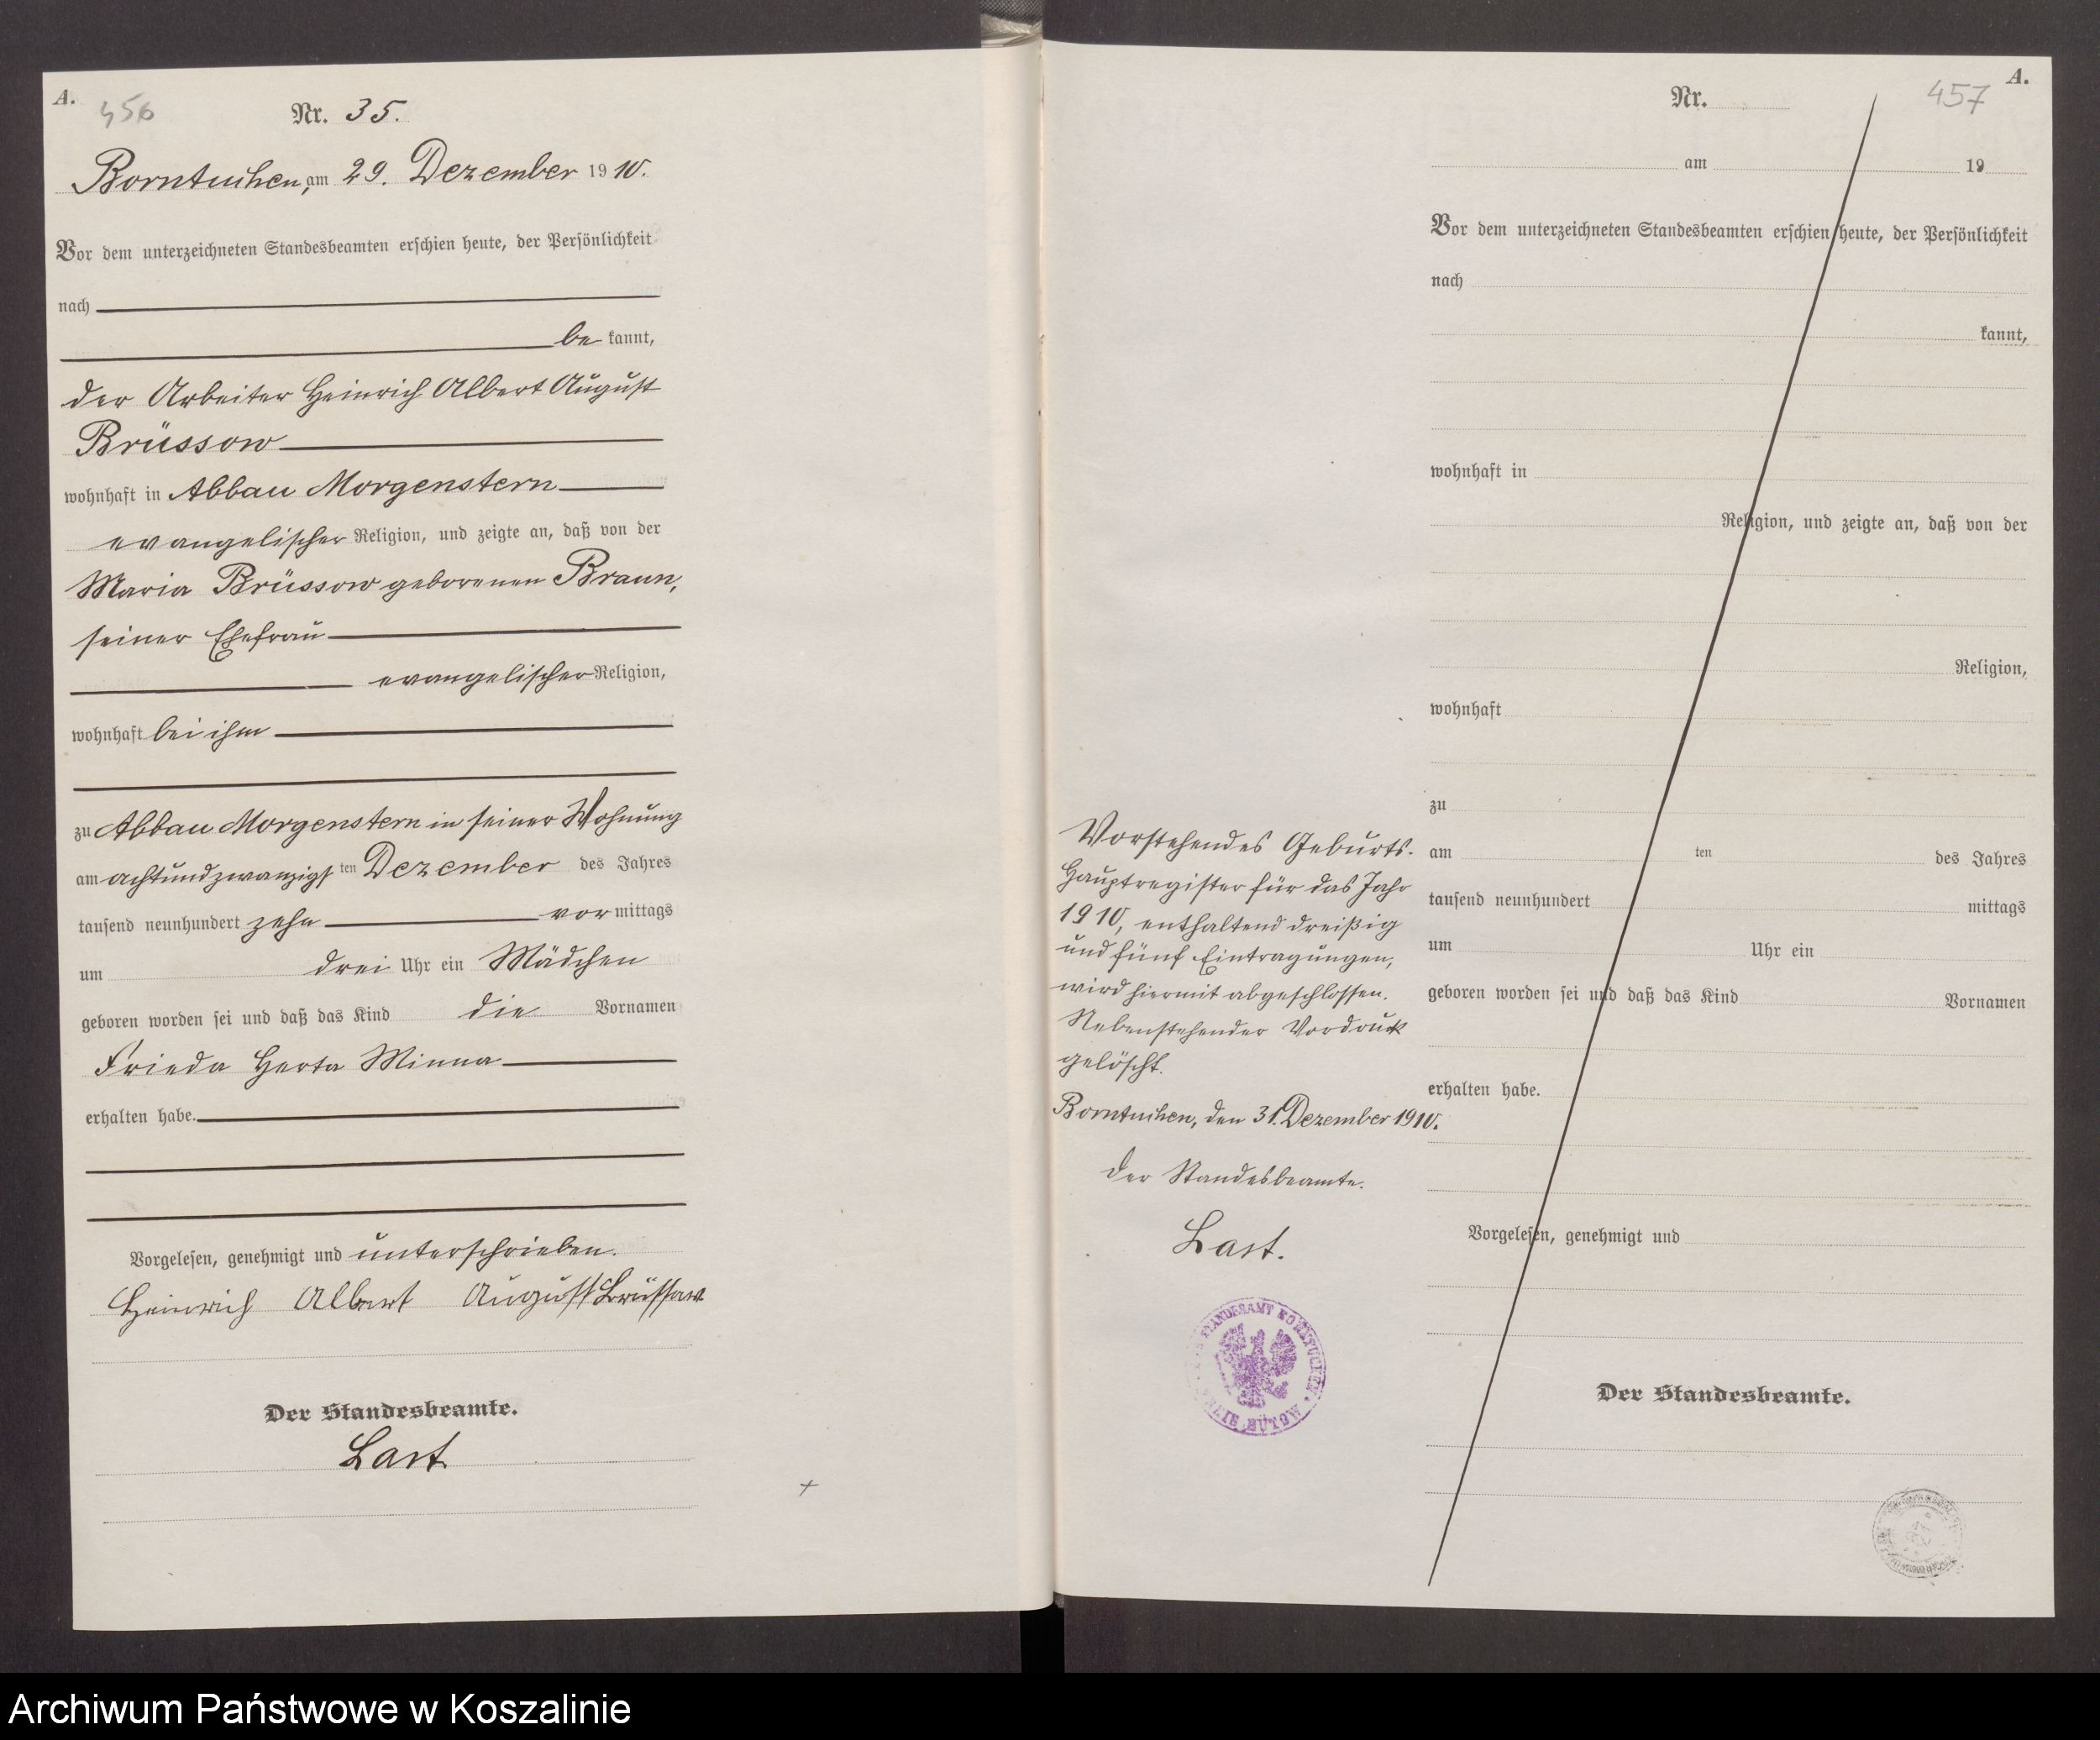 A.
456
Nr. 35.
Borntuchen, am 29. Dezember 1910.
Vor dem unterzeichneten Standesbeamten erschien heute, der Persönlichkeit
nach
be kannt,
der Arbeiter Heinrich Albert August
Brüssow
wohnhaft in Abbau Morgenstern
evangelischer Religion, und zeigte an, daß von der
Maria Brüssow geborenen Braun,
seiner Ehefrau
evangelischer Religion,
wohnhaft bei ihm
zu Abbau Morgenstern in seiner Wohnung
am achtundzwanzigsten Dezember des Jahres
tausend neunhundert zehn vor mittags
um drei Uhr ein Mädchen
geboren worden sei und daß das Kind die Vornamen
Frieda Herta Minna
erhalten habe.
Vorgelesen, genehmigt und unterschrieben.
Heinrich Albert August Brüssow
Der Standesbeamte.
Last
Vorstehendes Geburts-
Hauptregister für das Jahr
1910, enthaltend dreißig
und fünf Eintragungen,
wird hiermit abgeschlossen.
Nebenstehender Vordruck
gelöscht.
Borntuchen, den 31. Dezember 1910.
Der Standesbeamte.
Last.
STANDESAMT BORNTUCHEN
BÜTOW
457
A.
Nr.
am 19
Vor dem unterzeichneten Standesbeamten erschien heute, der Persönlichkeit
nach
kannt,
wohnhaft in
Religion, und zeigte an, daß von der
Religion,
wohnhaft
zu
am ten des Jahres
tausend neunhundert mittags
um Uhr ein
geboren worden sei und daß das Kind Vornamen
erhalten habe.
Vorgelesen, genehmigt und
Der Standesbeamte.
Archiwum Państwowe w Koszalinie